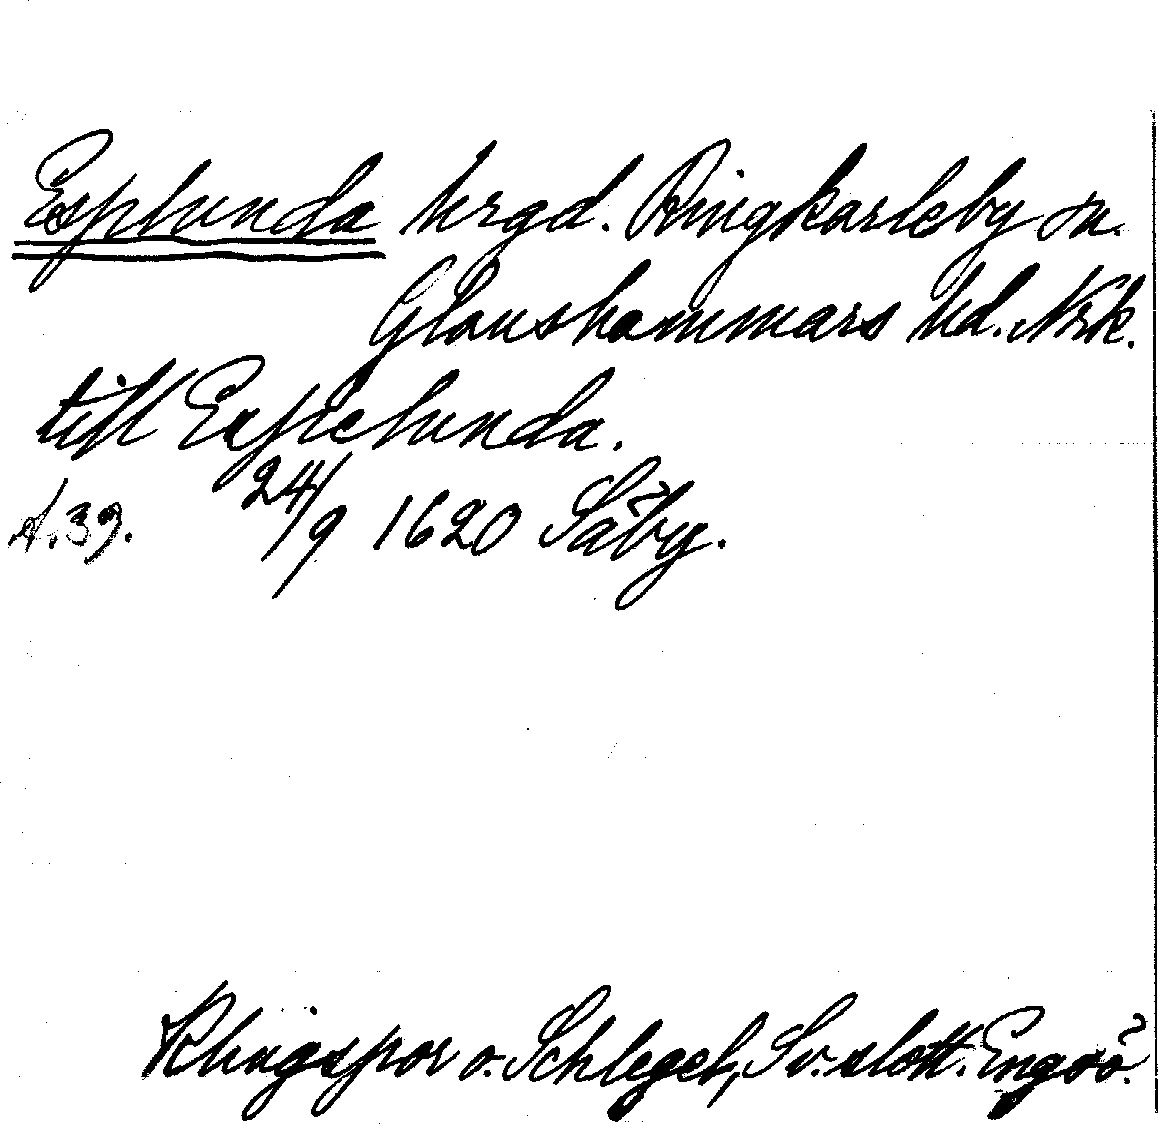 Esplunda hrgd. Ringkarleby sn.
Glanshammars hd. Nrk.
till Espelunda.
A.39. 24/9 1620 Säby.
Klingspor o. Schlegel, Sv. slott. Engsö.